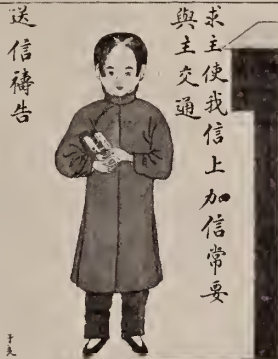 求主使我信上加信常要
與主交通
送信禱告